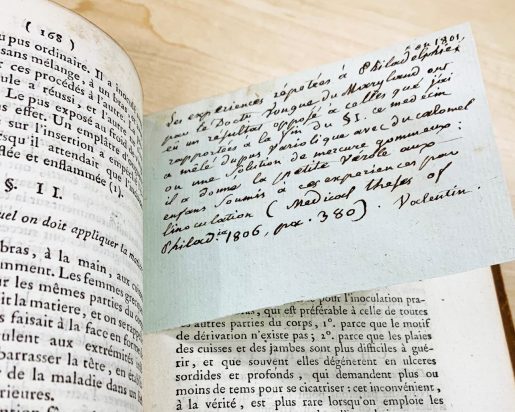 ( 168 )
pus ordinaire. Il a
sans mélange, à un
ces procédés à l'ar
ule a réussi, et l'autre
Le pus exposé au fro
effet. Un emplâtre d
sur l'insertion a em
squ'il attendait que
flée et enflammée (1).
§. II.
uel on doit appliquer la ma
bras, à la main, aux
mment. Les femmes grec
r les mêmes parties du
it la matiere, et on se
faisait à la face en for
ulent aux extrémités
barrasser la tête, en
de la maladie dans
rieures.
en 1801,
Les experiences répétées à Philadelphie
par le Docte Yongue du Maryland ont
eu un résultat opposé à celles que j'ai
rapportées à la fin du §I. ce médecin
a mêlé du pus variolique avec du calomel
ou une Solution de mercure gommeux:
il a donné la petite vérole aux
enfans soumis à ces experiences par
l'inoculation (Medical theses of
Philad.ia 1806, pag. 380). Valentin.
est préférable à celle de toutes
es autres parties du corps, 1°. parce que le motif
de dérivation n'existe pas; 2°. parce que les plaies
des cuisses et des jambes sont plus difficiles à gué-
rir, et que souvent elles dégénèrent en ulceres
sordides et profonds, qui demandent plus ou
moins de tems pour se cicatriser: cet inconvénient,
à la vérité, est plus rare lorsqu'on emploie les